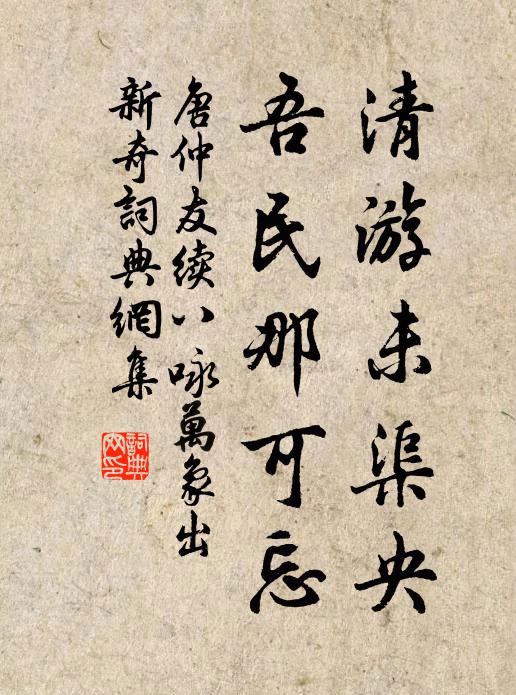 清游未渠央
吾民那可忘
唐仲友续八咏萬象出
新奇詞典網集
詞典网印